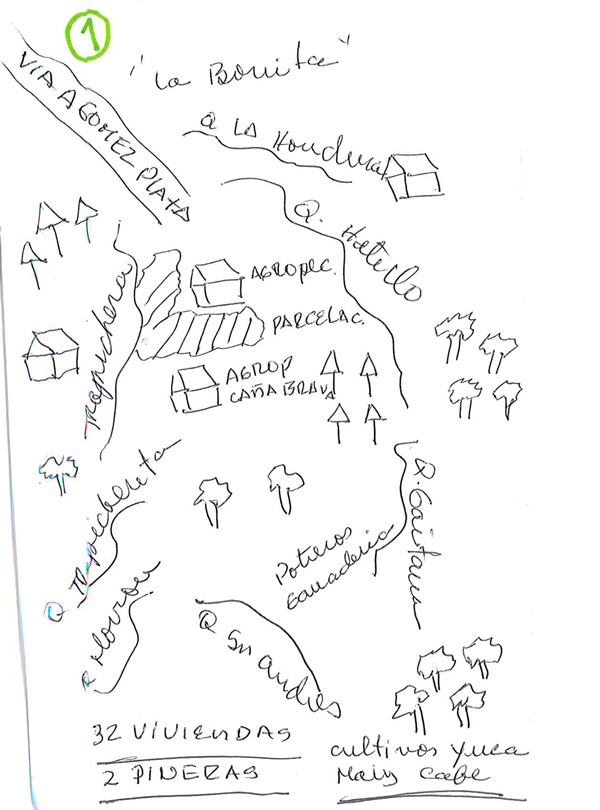 1
"La Bonita"
VIA A GOMEZ PLATA
Q LA Hondura
Q. Hatillo
Trapichera
AGROPEC.
PARCELAC.
AGROP
CAÑA BRAVA
Q Trapichereta
Q. Gaitana
Potreros
Ganaderia
Q
Q Sn andres
32 VIVIENDAS
2 PINERAS
cultivos yuca
Maiz cafe